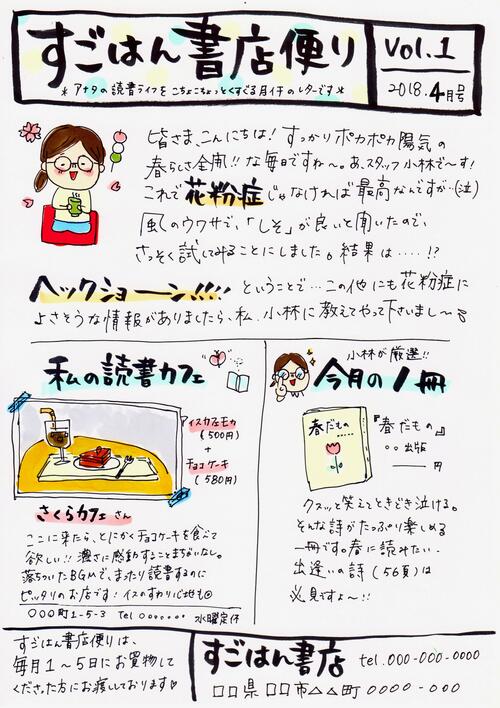 すごはん書店便り
Vol.1
*アナタの読書ライフをこちょこちょっとくすぐる月イチのレターです*
2018.4月号
皆さま、こんにちは！すっかりポカポカ陽気の
春らしさ全開!!な毎日ですね〜。あ、スタッフ小林で〜す！
これで花粉症じゃなければ最高なんですが…(泣)
風のウワサで、「しそ」が良いと聞いたので、
さっそく試してみることにしました。結果は……!?
ヘックショーーン!!!! ということで…この他にも花粉症に
よさそうな情報がありましたら、私、小林に教えてやって下さいまし〜
私の読書カフェ
アイスカフェモカ
(500円)
+
チョコケーキ
(580円)
さくらカフェさん
ここに来たら、とにかくチョコケーキを食べて
欲しい!!濃さに感動することまちがいなし。
落ちついたBGMで、まったり読書するのに
ピッタリのお店です！イスのすわり心地も◎
○○○町1-5-3 Tel ○○○○○○○ 水曜定休
小林が厳選!!
今月の1冊
春だもの
『春だもの』
○○出版
円
クスッと笑えてときどき泣ける。
そんな詩がたっぷり楽しめる
一冊です。春に読みたい、
出逢いの詩(56頁)は
必見ですよ〜!!
すごはん書店便りは、
毎月1〜5日にお買物して
くださった方にお渡ししております♡
すごはん書店
tel.000-000-0000
□□県□□市△△町0000-000